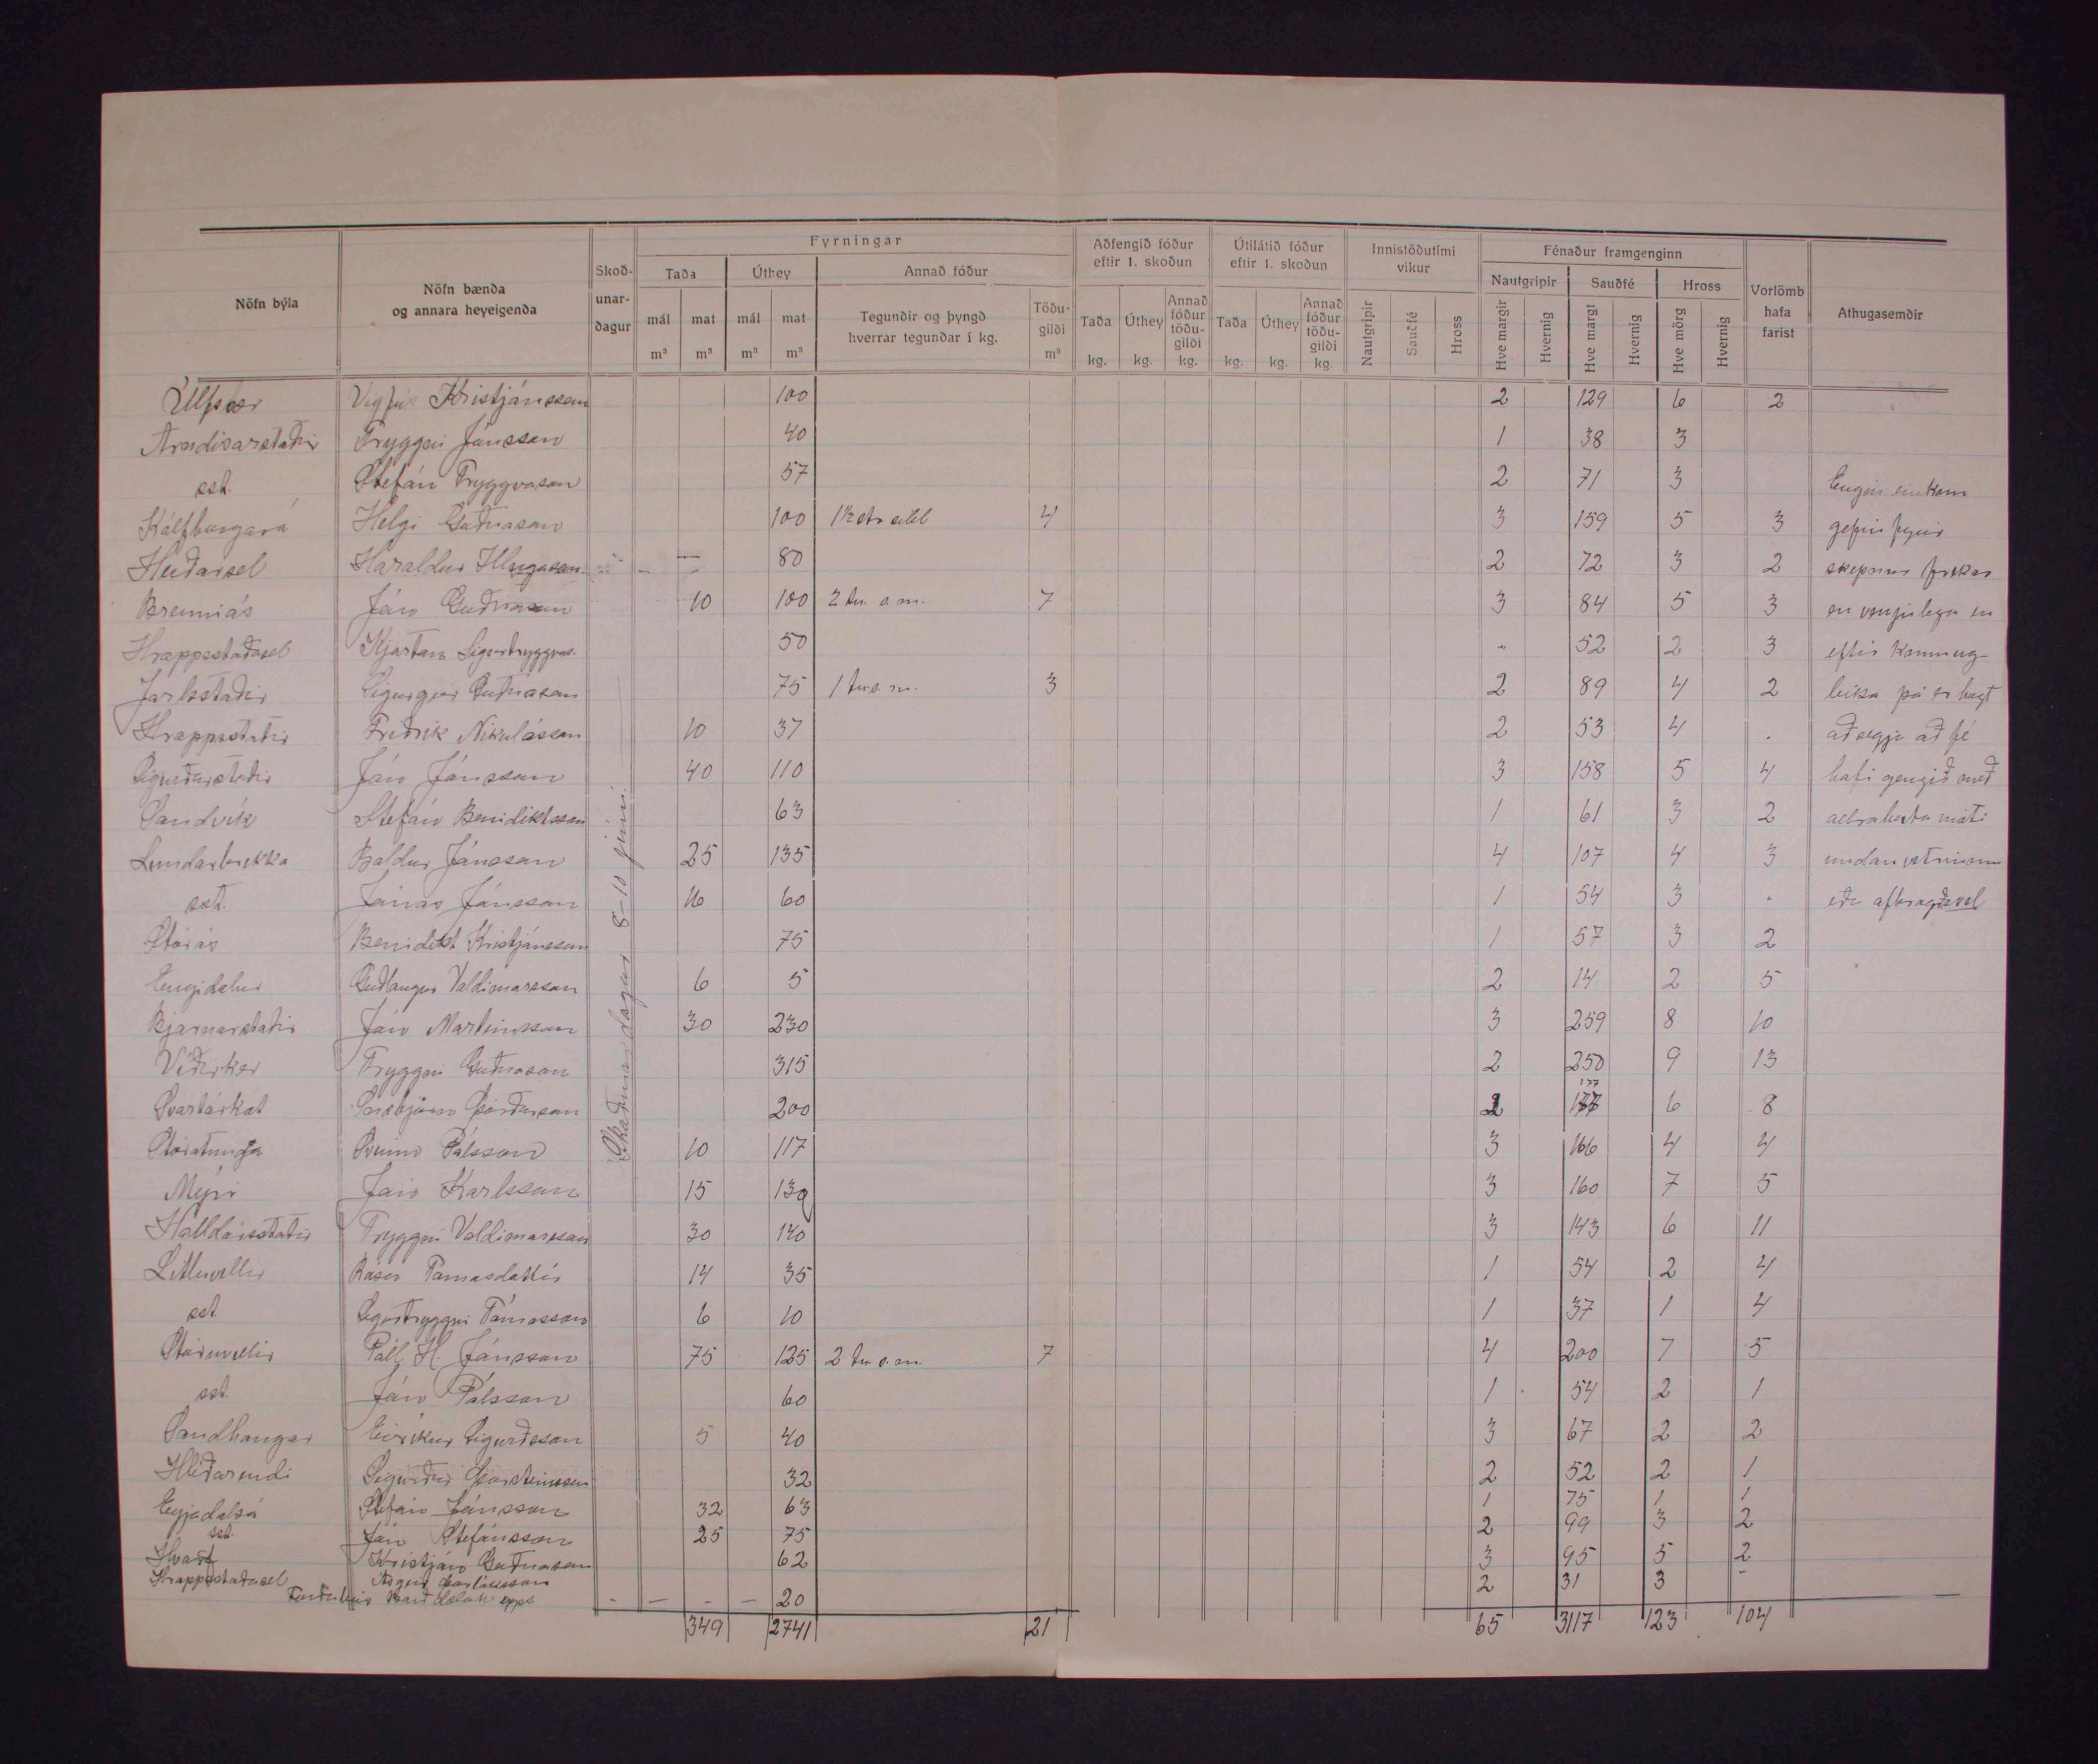 Fyrningar
Aðfengið fóður eftir 1. skoðun
Útilátið fóður eftir 1. skoðun
Innistöðutími vikur
Fénaður framgenginn
Nöfn býla
Nöfn bænda og annara heyeigenda
Skoð-unar-dagur
Taða
Úthey
Annað fóður
Nautgripir
Sauðfé
Hross
Vorlömb hafa farist
Athugasemdir
mál m³
mat m³
mál m³
mat m³
Tegundir og þyngd hverrar tegundar í kg.
Töðu-gildi m³
Taða kg.
Úthey kg.
Annað fóður töðu-gildi kg.
Taða kg.
Úthey kg.
Annað fóður töðu-gildi kg.
Nautgripir
Sauðfé
Hross
Hve margir
Hvernig
Hve margt
Hvernig
Hve mörg
Hvernig
Skoðunardagar 8-10 júní.
Úlfsbær Vigfús Kristjánsson 100 2 129 6 2
Arndísarstaðir Tryggvi Jónsson 40 1 38 3
sst. Stefán Tryggvason 57 2 71 3 Engin einkum
Kálfborgará Helgi Guðnason 100 4 3 159 5 3 gefin fyrir
Heiðarsel Haraldur Illugason 80 2 72 3 2 skepnur frekar
Brenniás Jón Guðnason 10 100 2 tn. s.m. 7 3 84 5 3 en venjulega en
Hrappsstaðasel Kjartan Sigurtryggvas. 50 " 52 2 3 eftir
Jarlsstaðir Sigurgeir Guðnason 75 1 tn s.m. 3 2 89 4 2 þá er hægt
Hrappsstaðir Friðrik Nikulásson 10 37 2 53 4 . að segja að fé
Sigurðarstaðir Jón Jónsson 40 110 3 158 5 4 hafi gengið með
Sandvík Stefán Benidiktsson 63 1 61 3 2 allrabesta máti
Lundarbrekka Baldur Jónsson 25 135 4 107 4 3 undan vetrinum
sst. Jónas Jónsson 16 60 1 54 3 . eða afbragðsvel
Stórás Benidikt Kristjánsson 75 1 57 3 2
Engidalur Guðlaugur Valdimarsson 6 5 2 14 2 5
Bjarnarstaðir Jón Marteinsson 30 230 3 259 8 10
Víðirker Tryggvi Guðnason 315 2 250 9 13
Svartárkot Þórðarson 200 2 177 6 8
Stóratunga Sveinn Pálsson 10 117 3 166 4 4
Mýri Jón Karlsson 15 139 3 160 7 5
Halldórsstaðir Tryggvi Valdimarsson 30 140 3 143 6 11
Litluvellir Rósa Tómasdóttir 14 35 1 54 2 4
sst. Sigurtryggvi Tómasson 6 10 1 37 1 4
Stóruvellir Páll H. Jónsson 75 125 2 tn s.m. 7 4 200 7 5
sst. Jón Pálsson 60 1 54 2 1
Sandhaugar Eiríkur Sigurðsson 5 40 3 67 2 2
Hlíðarendi Sigurður Þorsteinsson 32 2 52 2 1
Eyjadalsá Stefán Jónsson 32 63 1 75 1 1
sst. Jón Stefánsson 25 75 2 99 3 2
Hvarf Kristján Guðnason 62 3 95 5 2
Hrappstaðasel 2 31 3 -
Barðdælahr - - - - 20
349 2741 21 65 3117 123 104